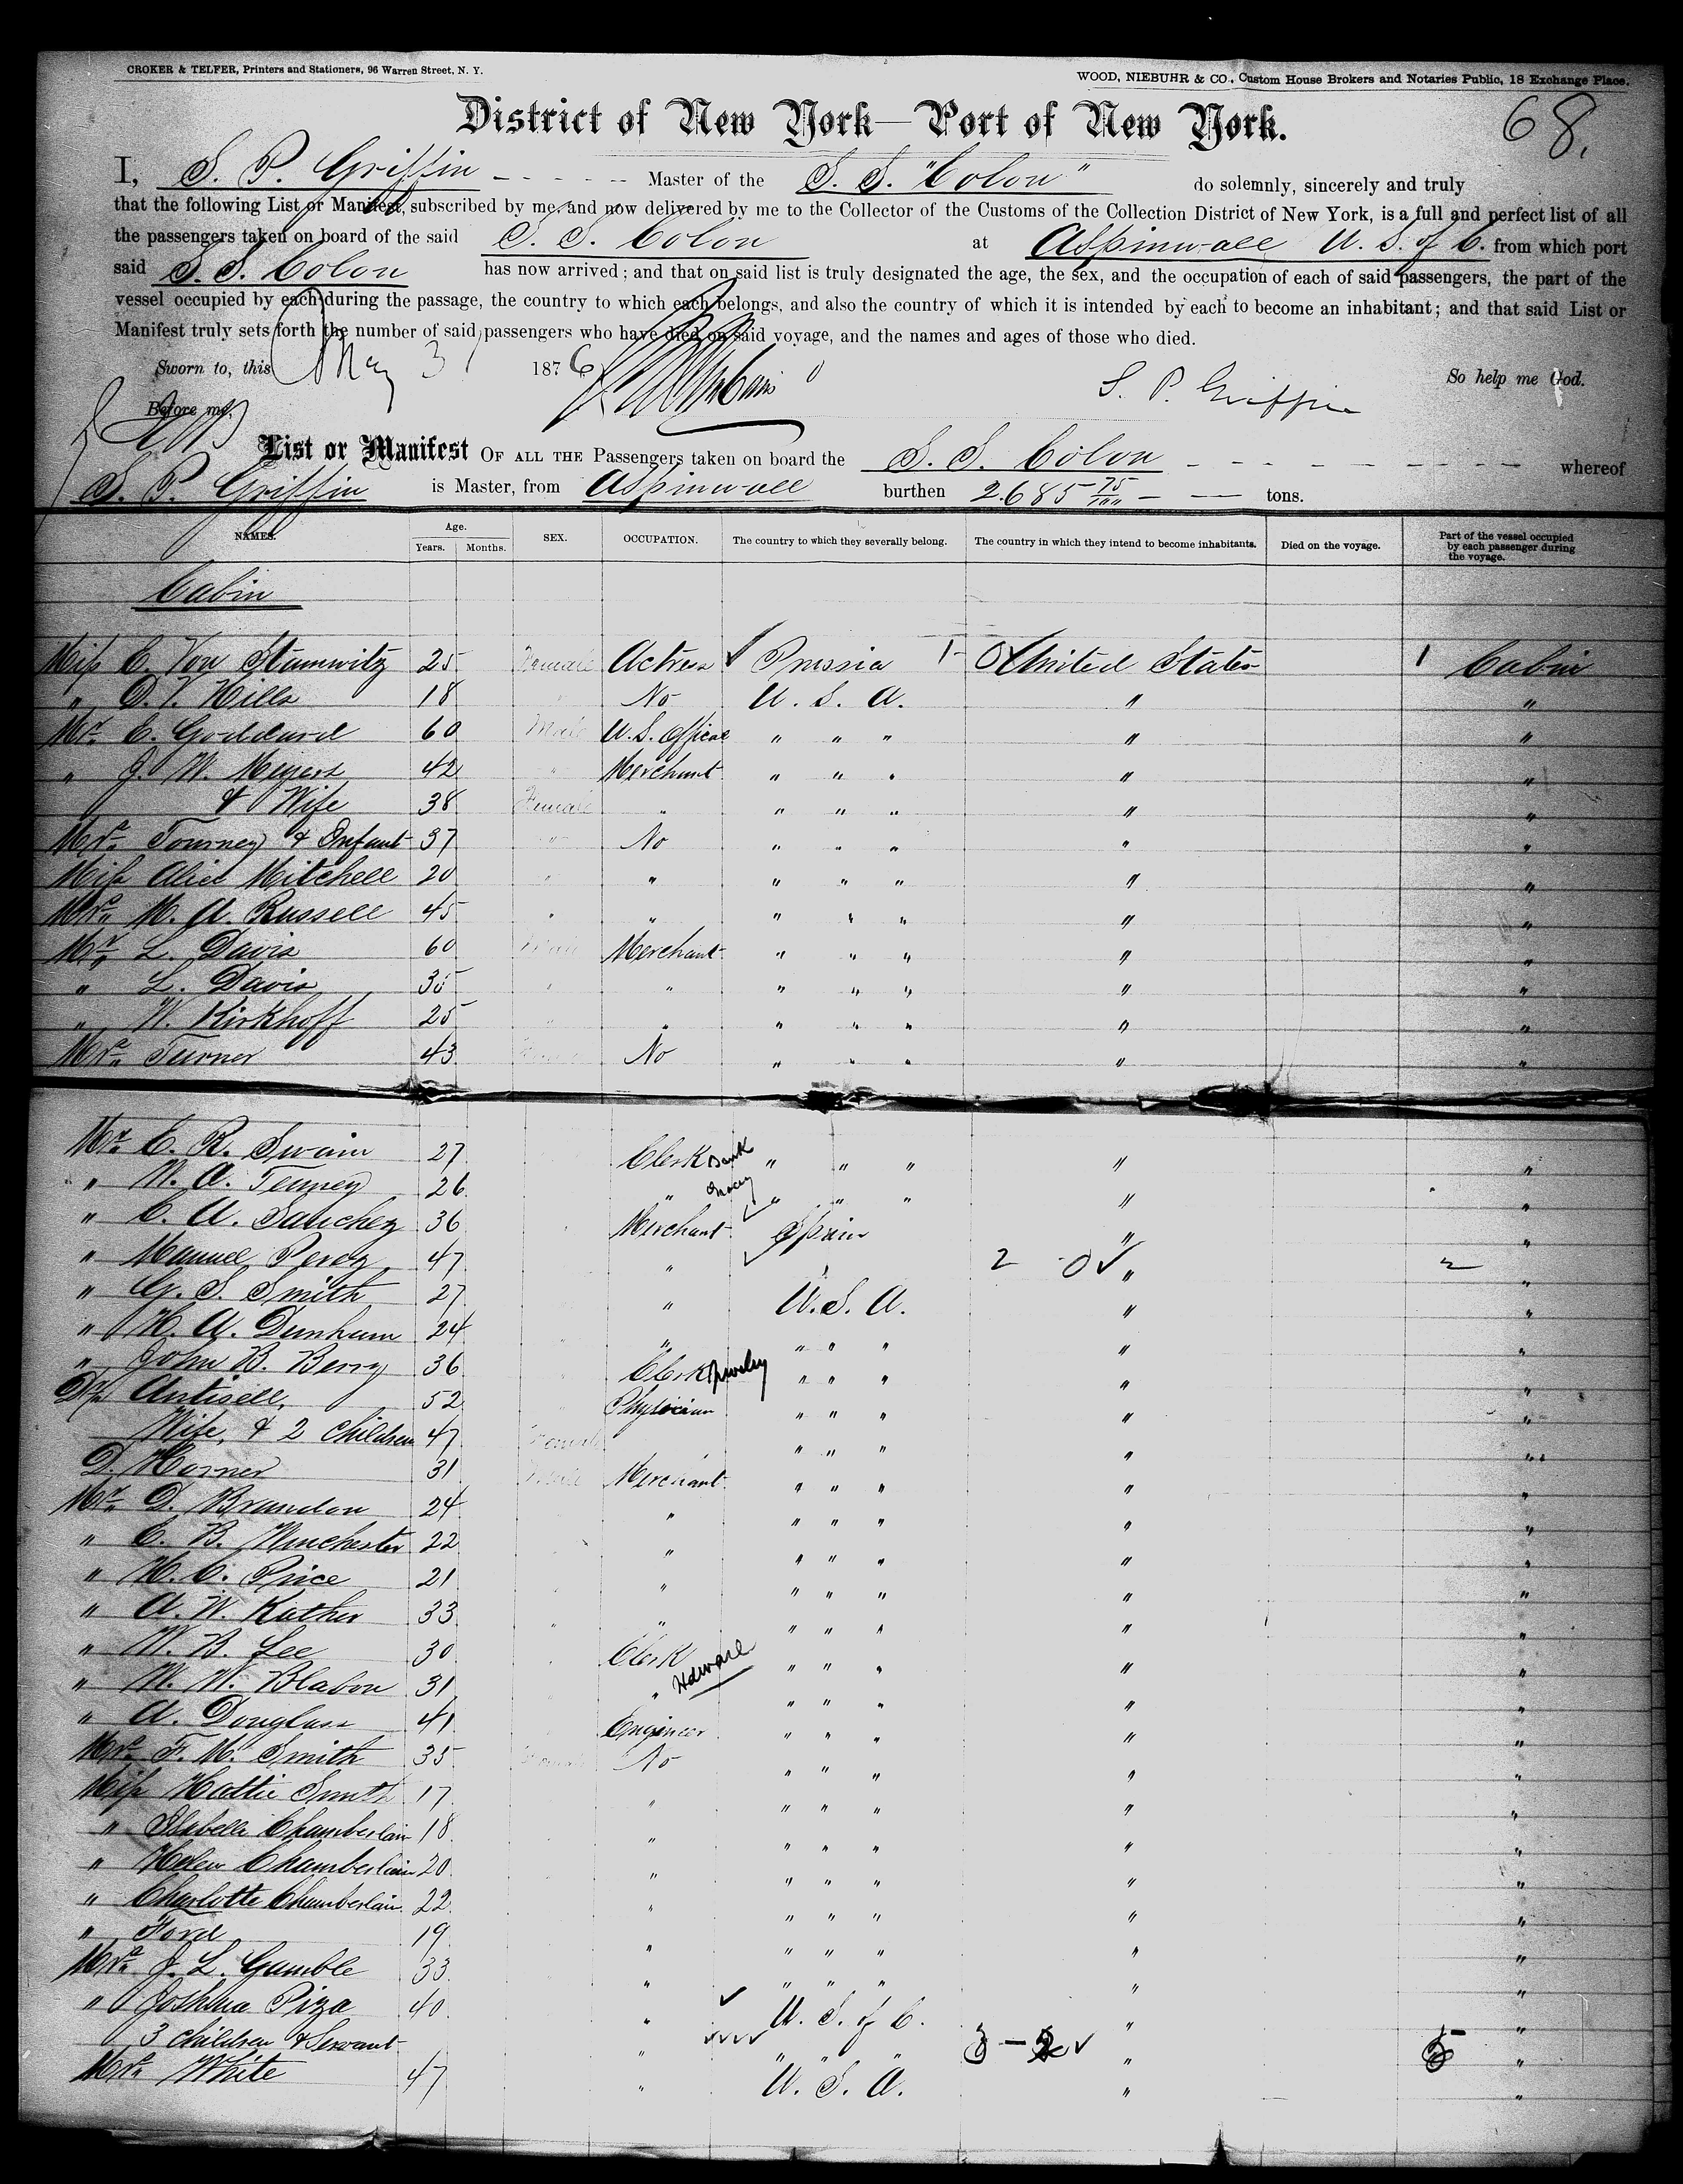 CROKER & TELFER, Printers and Stationers, 96 Warren Street, N. Y.
WOOD, NIEBUHR & CO., Custom House Brokers and Notaries Public, 18 Exchange Place.
68.
District of New York—Port of New York.
I, S. P. Griffin Master of the S. S. "Colon" do solemnly, sincerely and truly
that the following List or Manifest, subscribed by me, and now delivered by me to the Collector of the Customs of the Collection District of New York, is a full and perfect list of all
the passengers taken on board of the said S. S. Colon at Aspinwall U. S. of C. from which port
said S. S. Colon has now arrived; and that on said list is truly designated the age, the sex, and the occupation of each of said passengers, the part of the
vessel occupied by each during the passage, the country to which each belongs, and also the country of which it is intended by each to become an inhabitant; and that said List or
Manifest truly sets forth the number of said passengers who have died on said voyage, and the names and ages of those who died.
Sworn to, this May 31 1876 So help me God.
S. P. Griffin
Before me,
List or Manifest OF ALL THE Passengers taken on board the S. S. Colon whereof
S. P. Griffin is Master, from Aspinwall burthen 2.685 75/100 tons.
NAMES. Age. Years. Months. SEX. OCCUPATION. The country to which they severally belong. The country in which they intend to become inhabitants. Died on the voyage. Part of the vessel occupied by each passenger during the voyage.
Cabin
Miss C. Von Stamwitz 25 Female Actress Prussia 1 - 0 United States 1 Cabin
" D. V. Hills 18 " No U. S. A. " "
Mr. E. Goddard 60 Male U.S. Official " " " " "
" J. W. Meyers 42 " Merchant " " " " "
& Wife 38 Female " " " " " "
Mrs. Tourney & Infant 37 " No " " " " "
Miss Alice Mitchell 20 " " " " " " "
Mrs. M. A. Russell 45 " " " " " " "
Mr. L. Davis 60 Male Merchant " " " " "
" L. Davis 35 " " " " " " "
" W. Kirkhoff 25 " " " " " " "
Mrs. Turner 43 Female No " " " " "
Mr. C. R. Swain 27 Clerk Bank " " " " "
" W. A. Tenney 26 " Grocery " " " " "
" C. A. Sanchez 36 Merchant Spain " "
" Manuel Perez 47 " " 2 0 " 2 "
" G. S. Smith 27 " U. S. A. " "
" H. A. Dunham 24 " " " " " "
" John B. Berry 36 Clerk Jewelry " " " " "
Dr. Antisell, 52 Physician " " " " "
Wife, & 2 Children 47 Female " " " " "
D. Horner 31 Male Merchant " " " " "
Mr. D. Brandon 24 " " " " " "
" C. B. Winchester 22 " " " " " "
" H. C. Price 21 " " " " " "
" A. W. Kather 33 " " " " " " "
" W. B. Lee 30 Clerk " " " " "
" M. W. Blabon 31 " Hdware " " " " "
" A. Douglass 41 Engineer " " " " "
Mrs. F. M. Smith 35 Female No " " " " "
Miss Hattie Smith 17 " " " " " "
" Isabella Chamberlain 18 " " " " " "
" Helen Chamberlain 20 " " " " " "
" Charlotte Chamberlain 22 " " " " " "
" Ford 19 " " " " " "
Mrs. J. L. Gamble 33 " " " " " "
" Joshua Piza 40 " U. S. of C. " "
3 Children & Servant " " " " " 5 "
Mrs. White 47 " U. S. A. " "